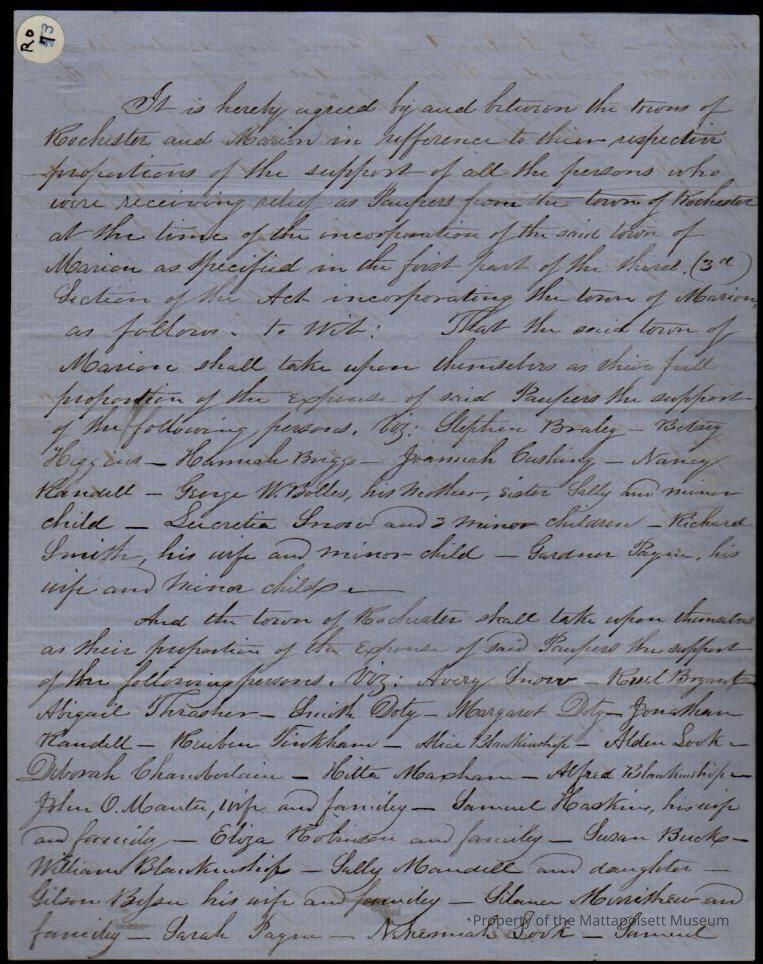 RO
73
It is hereby agreed by and between the towns of
Rochester and Marion in refference to their respective
proportions of the support of all the persons who
were receiving relief as Paupers from the town of Rochester
at the time of the incorporation of the said town of
Marion as specified in the first part of the third. (3d)
Section of the Act incorporating the town of Marion,
as follows. to wit: That the said town of
Marion shall take upon themselves as their full
proportion of the expense of said Paupers the support
of the following persons. Viz: Stephen Braley – Betsey
Higgins – Hannah Briggs – Joannah Cushing – Nancy
Randell – George W. Bolles, his mother, sister Sally and minor
child – Lucretia Snow and 3 minor children – Richard
Smith, his wife and minor child – Gardner Payne, his
wife and minor child –
And the town of Rochester shall take upon themselves
as their proportion of the Expense of said Paupers the support
of the following persons. Viz: Avery Snow – Ruel Bryant –
Abigail Thrasher – Smith Doty – Margaret Doty – Jonathan
Randell – Reuben Tinkham – Alice Blankinship – Alden Look –
Deborah Chamberlain – Hitta Maxham – Alfred Blankinship –
John O. Manter, wife and family – Samuel Haskins, his wife
and family – Eliza Robinson and family – Susan Bucks –
William Blankinship – Sally Mandell and daughter –
Gilson Besse his wife and family – Silance Merrithew and
family – Sarah Payne – Nehemiah Look – Samuel
Property of the Mattapoisett Museum